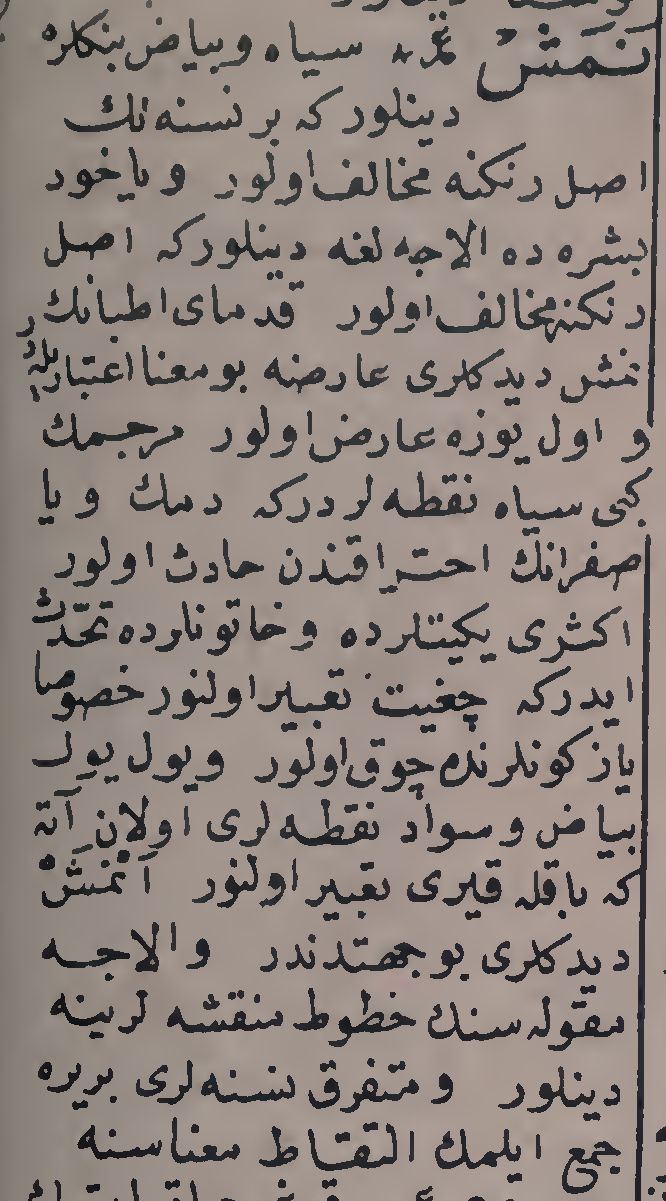 نَمَشْ سیاه و بیاض بنكلره
دینلور كه بر نسنه نك
اصل رنكنه مخالف اولور و یا خود
بشره ده الاجه لغه دینلور كه اصل
رنكنه مخالف اولور قدمای اطبانك
نمش دیدكلری عارضه بو معنا اعتباریله در
و اول یوزه عارض اولور مرجمك
كبی سیاه نقطه لر در كه دمك و یا
صفرانك احتراقندن حادث اولور
اكثری یكیتلرده و خاتونلرده تحدّث
ایدر كه چغیت تعبیر اولنور خصوصا
یاز كونلرنده چوق اولور و یول یول
بیاض و سواد نقطه لری اولان آته
كه باقله قیری تعبیر اولنور اَنْمَشْ
دیدكلری بو جهتدندر و الاجه
مقوله سنك خطوط منقشه لرینه
دینلور و متفرق نسنه لری بریره
جمع ایلمك التقاط معناسنه